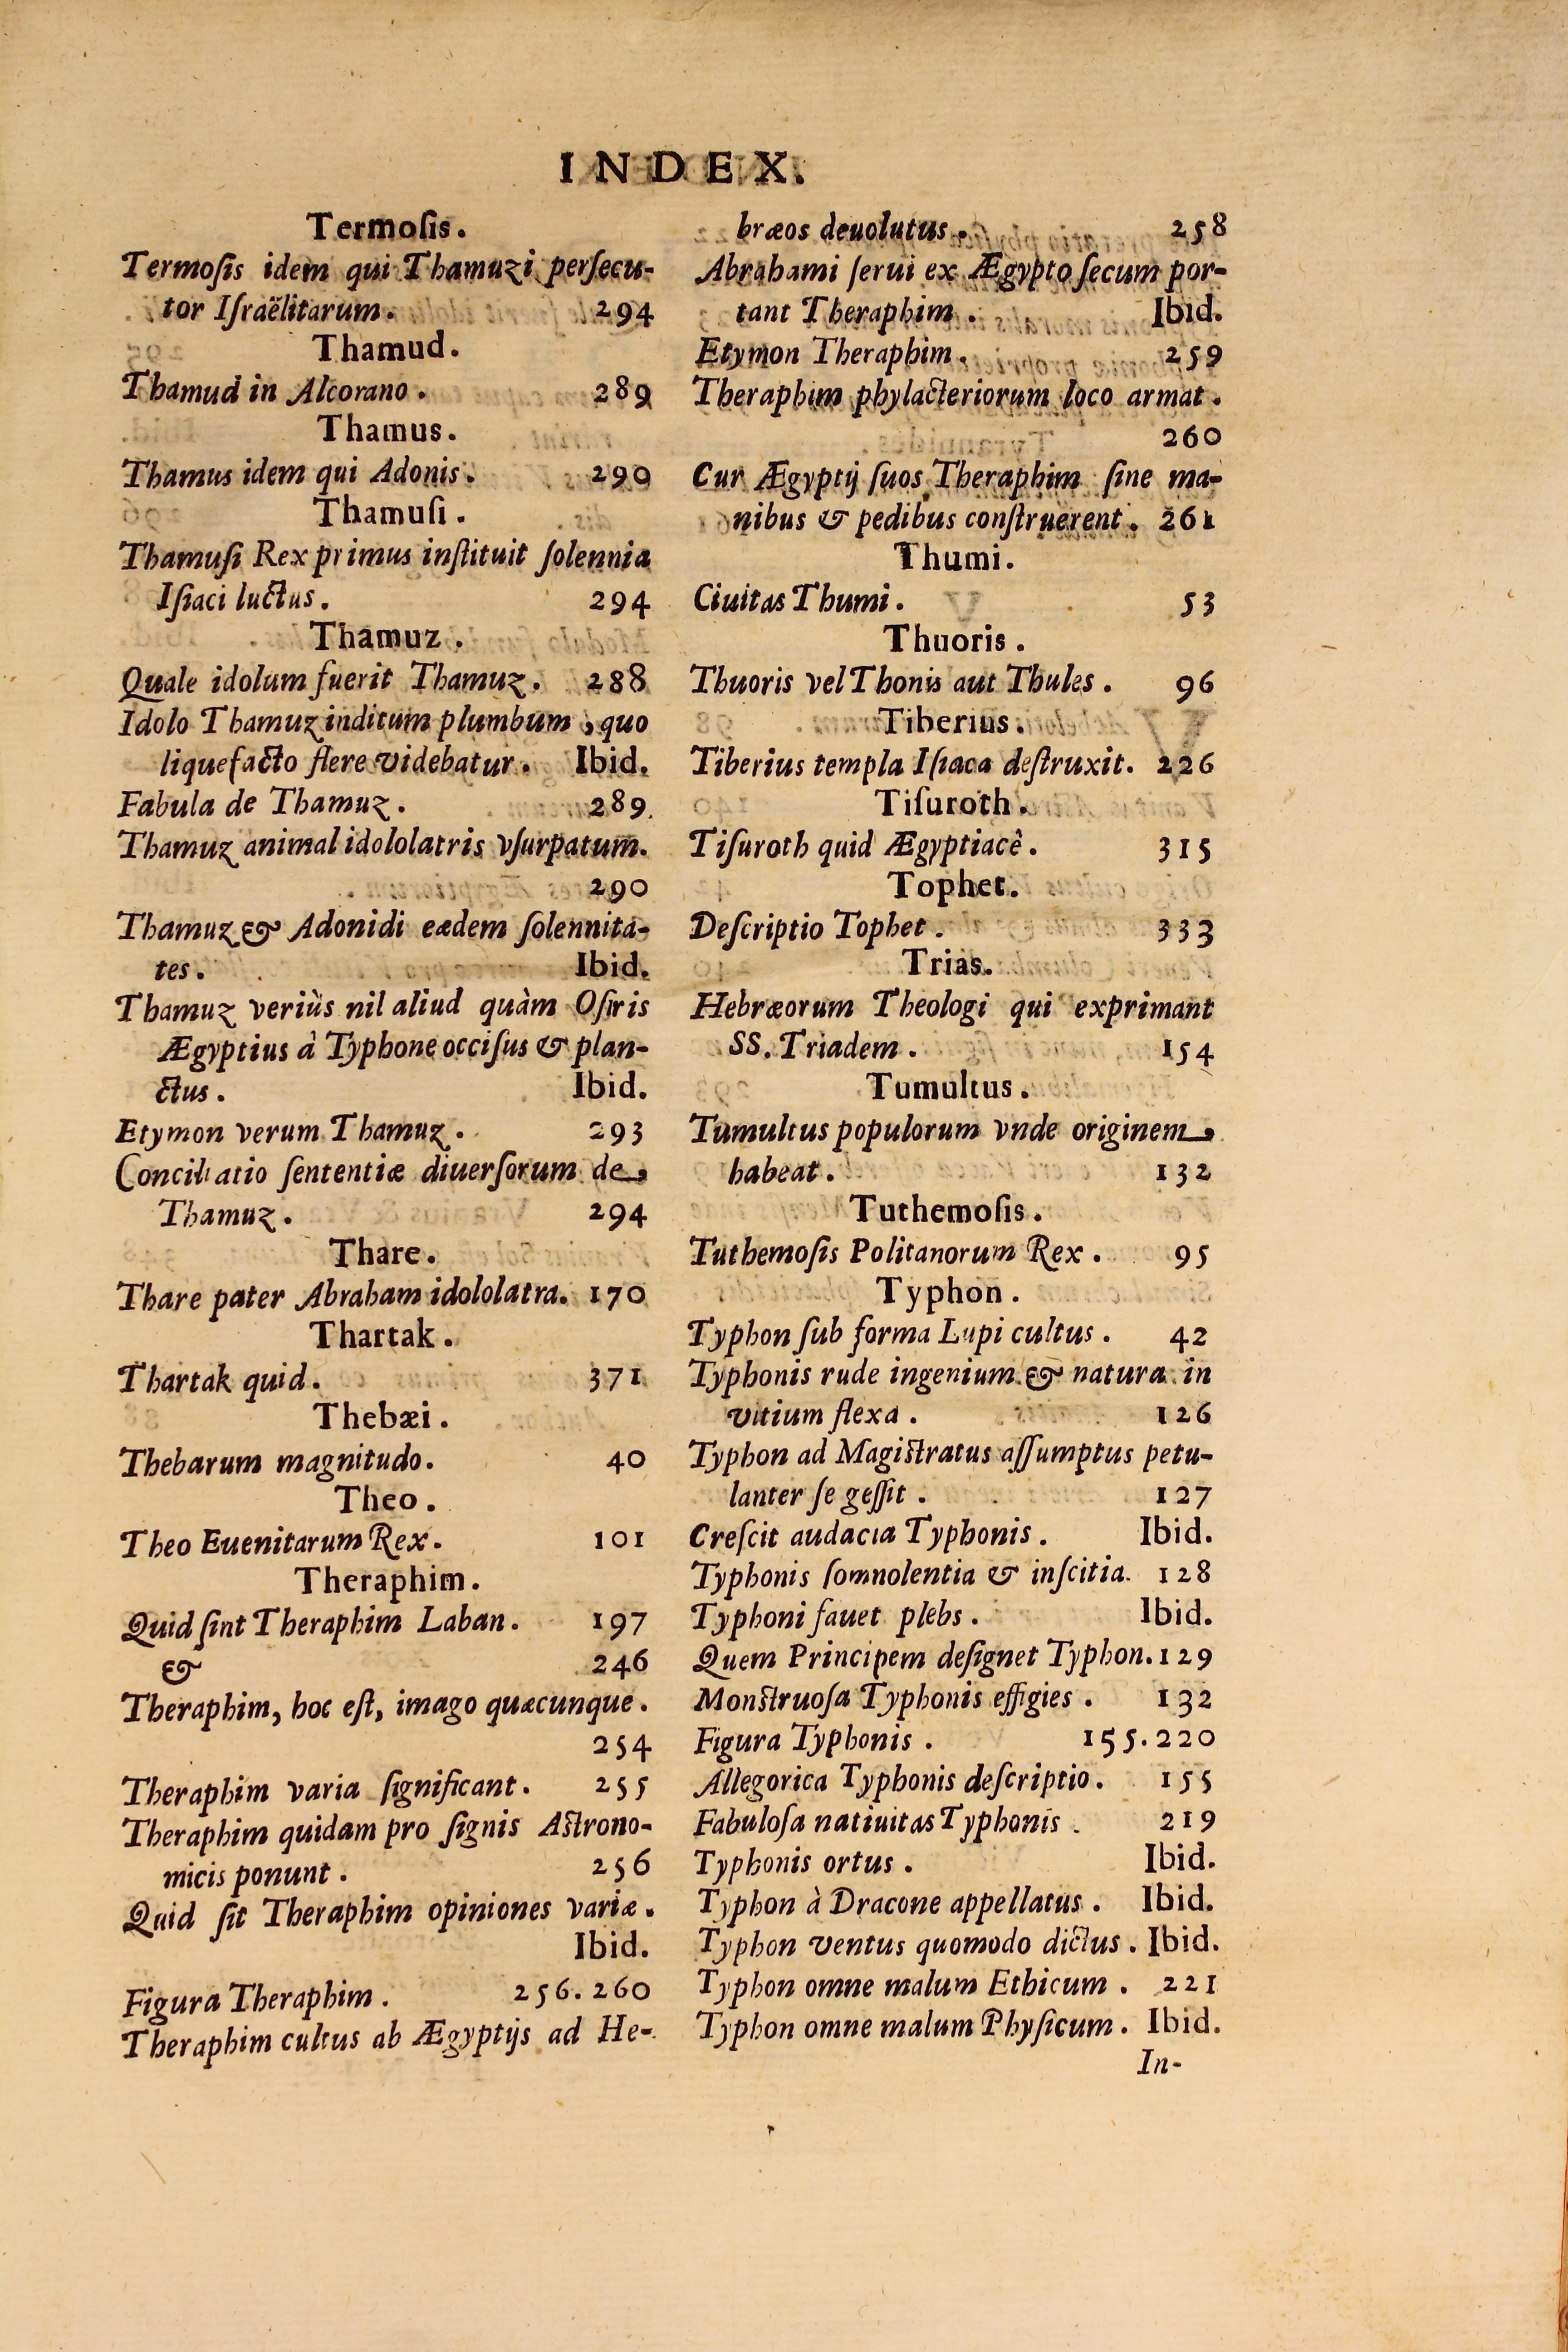 INDEX.
Termoſis.
Termoſis idem qui Thamuzi perſecu-
tor Iſraëlitarum. 294
Thamud.
Thamud in Alcorano. 289
Thamus.
Thamus idem qui Adonis. 290
Thamuſi.
Thamuſi Rex primus inſtituit ſolennia
Iſiaci luctus. 294
Thamuz.
Quale idolum fuerit Thamuz. 288
Idolo Thamuz inditum plumbum, quo
liquefacto flere videbatur. Ibid.
Fabula de Thamuz. 289.
Thamuz animal idololatris vſurpatum.
290
Thamuz & Adonidi eædem ſolennita-
tes. Ibid.
Thamuz veriùs nil aliud quàm Oſiris
Ægyptius à Typhone occiſus & plan-
ctus. Ibid.
Etymon verum Thamuz. 293
Conciliatio ſententiæ diuerſorum de
Thamuz. 294
Thare.
Thare pater Abraham idololatra. 170
Thartak.
Thartak quid. 371
Thebæi.
Thebarum magnitudo. 40
Theo.
Theo Euenitarum Rex. 101
Theraphim.
Quid ſint Theraphim Laban. 197
& 246
Theraphim, hoc eſt, imago quæcunque.
254
Theraphim varia ſignificant. 255
Theraphim quidam pro ſignis Aſtrono-
micis ponunt. 256
Quid ſit Theraphim opiniones variæ.
Ibid.
Figura Theraphim. 256.260
Theraphim cultus ab Ægyptijs ad He-
bræos deuolutus. 258
Abrahami ſerui ex Ægypto ſecum por-
tant Theraphim. Ibid.
Etymon Theraphim. 259
Theraphim phylacteriorum loco armat.
260
Cur Ægyptij ſuos Theraphim ſine ma-
nibus & pedibus conſtruerent. 261
Thumi.
Ciuitas Thumi. 53
Thuoris.
Thuoris vel Thonis aut Thules. 96
Tiberius.
Tiberius templa Iſiaca deſtruxit. 226
Tiſuroth.
Tiſuroth quid Ægyptiacè. 315
Tophet.
Deſcriptio Tophet. 333
Trias.
Hebræorum Theologi qui exprimant
SS. Triadem. 154
Tumultus.
Tumultus populorum vnde originem
habeat. 132
Tuthemoſis.
Tuthemoſis Politanorum Rex. 95
Typhon.
Typhon ſub forma Lupi cultus. 42
Typhonis rude ingenium & natura in
vitium flexa. 126
Typhon ad Magiſtratus aſſumptus petu-
lanter ſe geſſit. 127
Creſcit audacia Typhonis. Ibid.
Typhonis ſomnolentia & inſcitia. 128
Typhoni fauet plebs. Ibid.
Quem Principem deſignet Typhon. 129
Monſtruoſa Typhonis effigies. 132
Figura Typhonis. 155.220
Allegorica Typhonis deſcriptio. 155
Fabuloſa natiuitas Typhonis. 219
Typhonis ortus. Ibid.
Typhon à Dracone appellatus. Ibid.
Typhon ventus quomodo dictus. Ibid.
Typhon omne malum Ethicum. 221
Typhon omne malum Phyſicum. Ibid.
In-